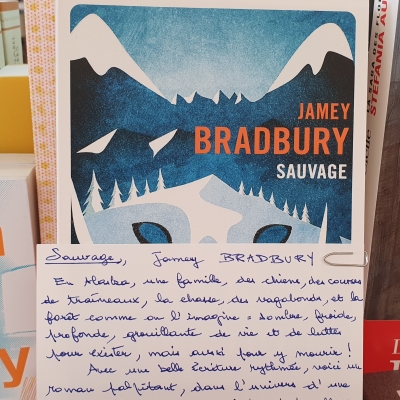 JAMEY
BRADBURY
SAUVAGE
Sauvage, Jamey BRADBURY
En Alaska, une famille, des chiens, des courses
de traîneaux, la chasse, des vagabonds, et la
forêt comme on l'imagine : sombre, froide,
profonde, grouillante de vie et de luttes
pour exister, mais aussi pour y mourir !
Avec une belle écriture rythmée, voici un
roman palpitant, dans l'univers d'une
LA SAGA DES FLO
STEFANIA AU